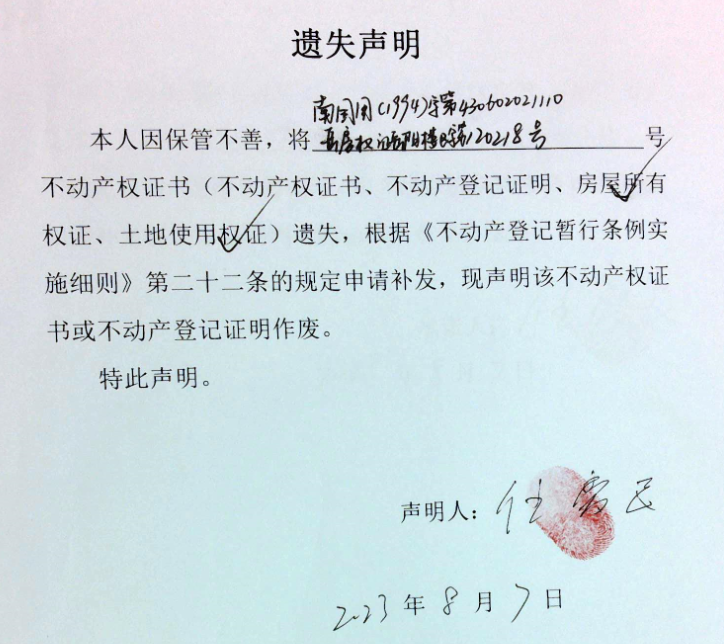 遗失声明
南国用(1994)字第430602021110
本人因保管不善，将岳房权证岳阳楼区字第120218号号
不动产权证书（不动产权证书、不动产登记证明、房屋所有
权证、土地使用权证）遗失，根据《不动产登记暂行条例实
施细则》第二十二条的规定申请补发，现声明该不动产权证
书或不动产登记证明作废。
特此声明。
声明人：任 民
2023年8月7日